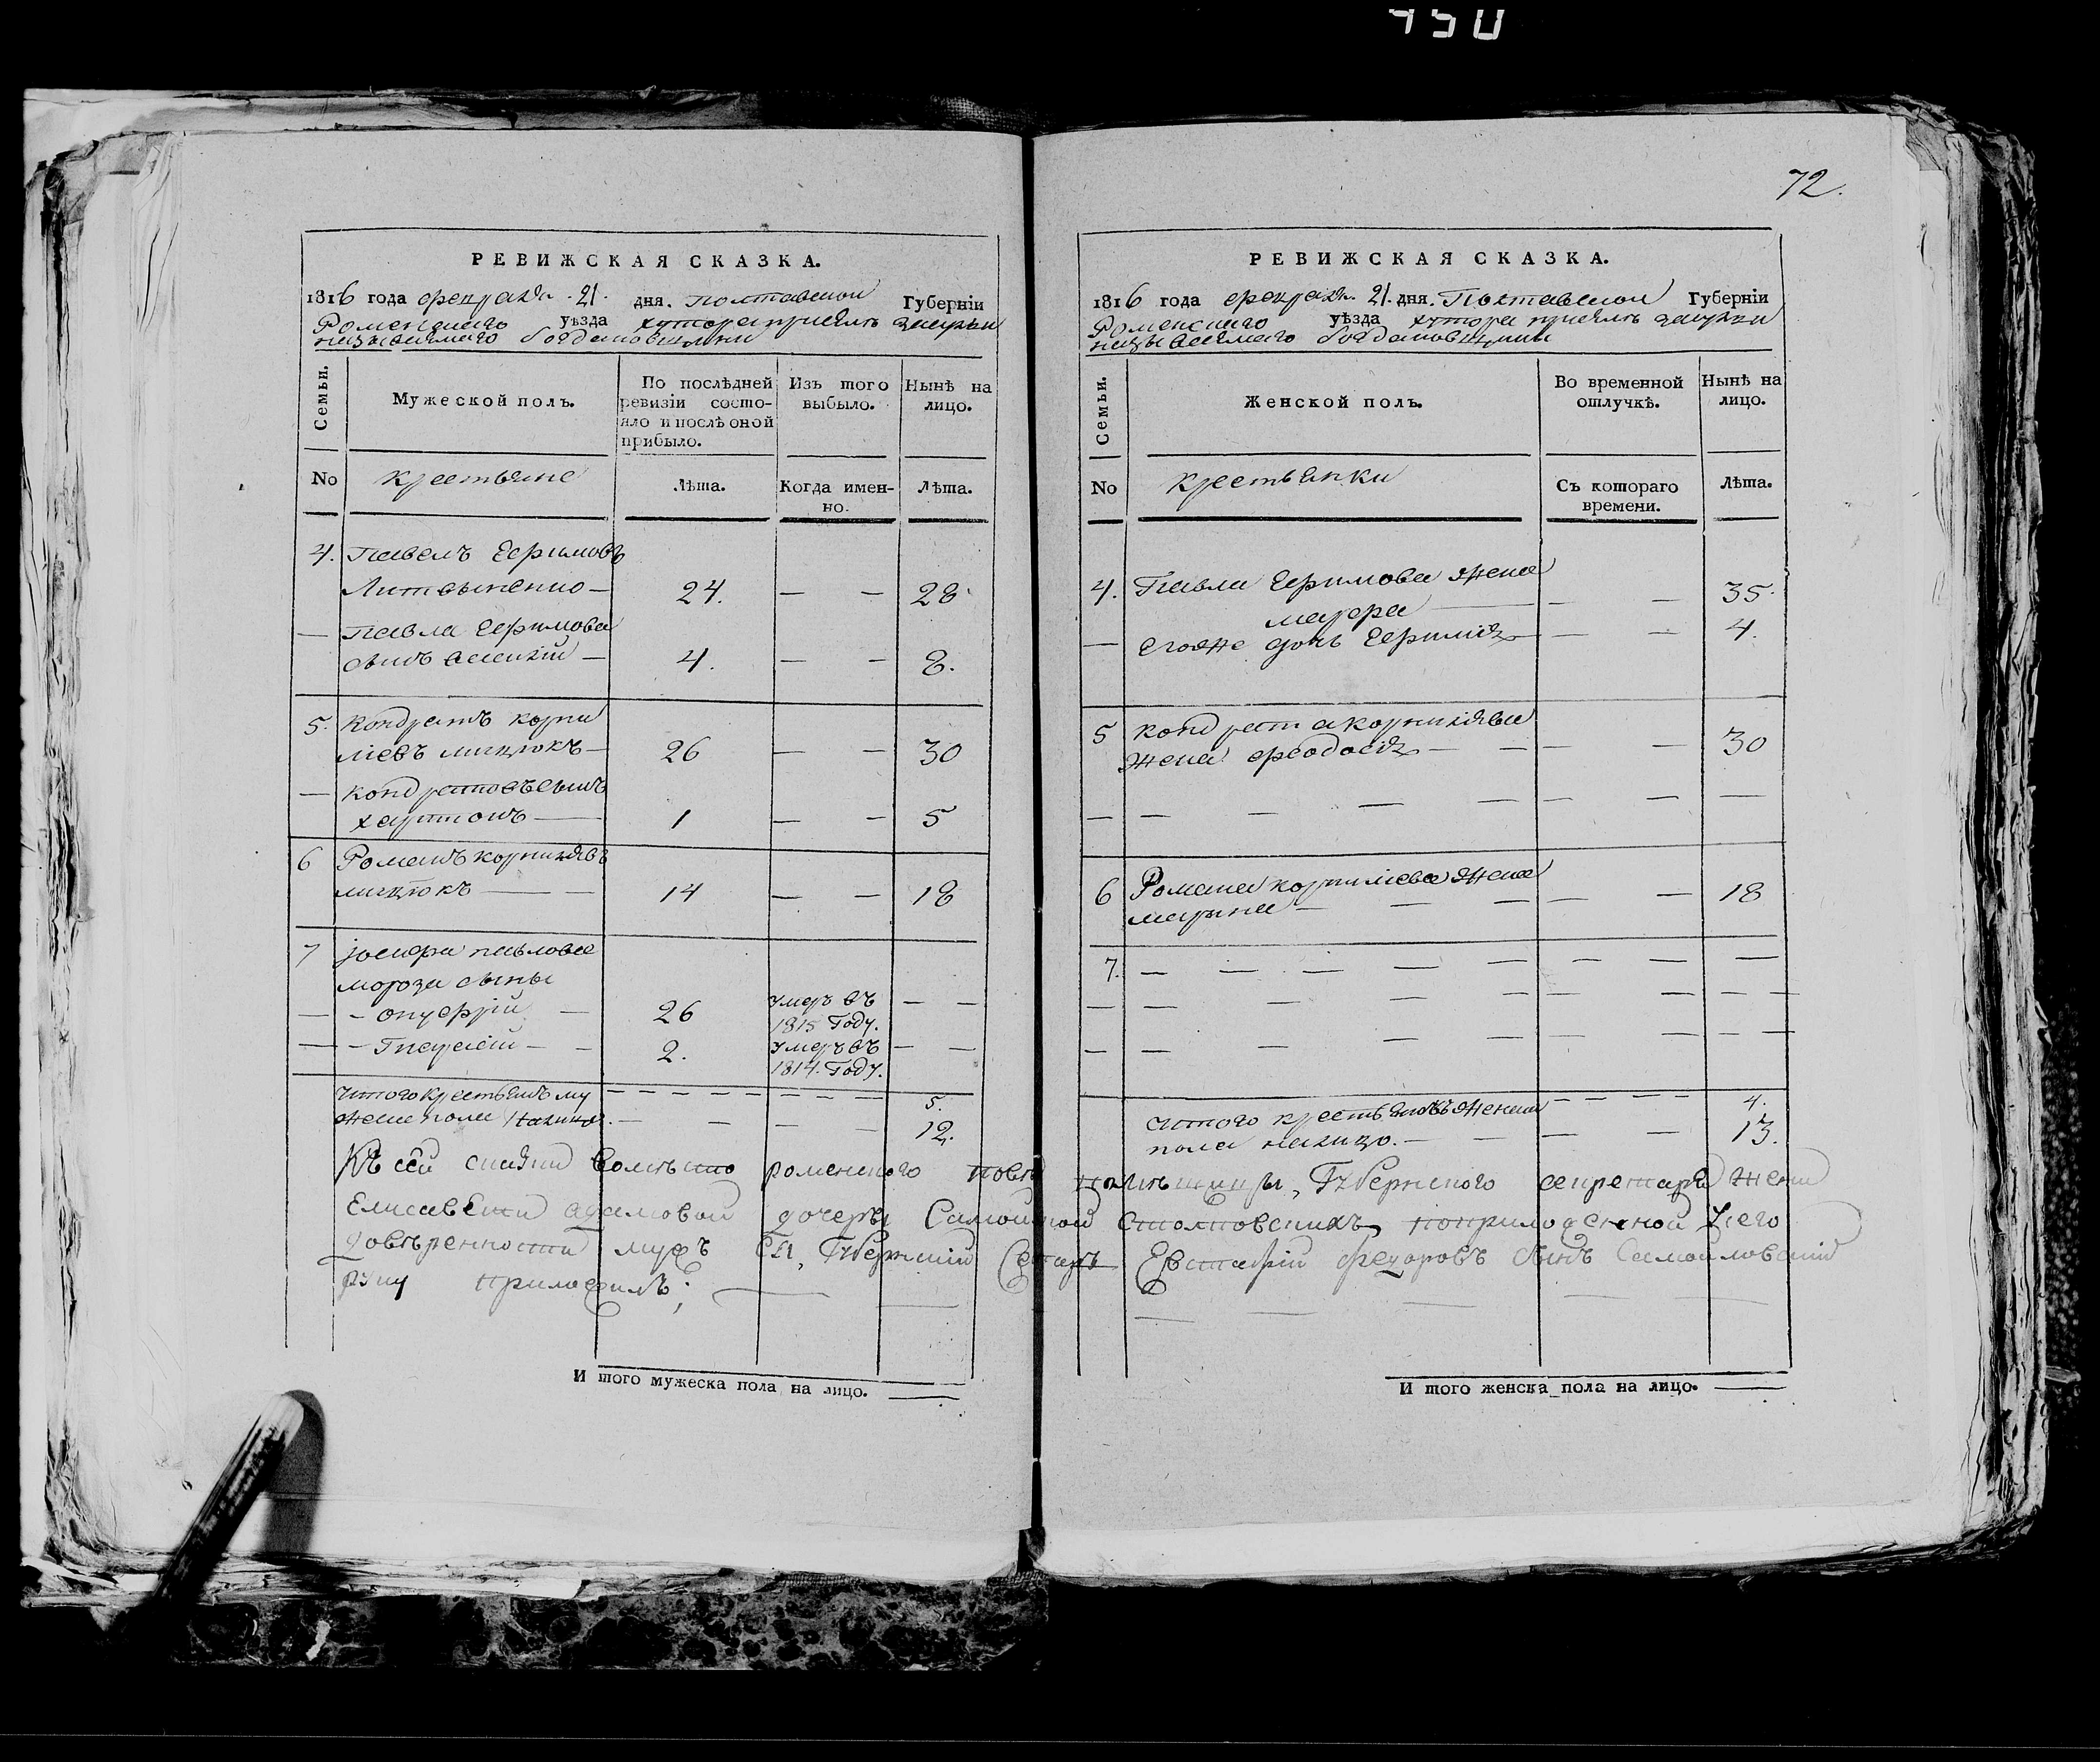 450
72.
РЕВИЖСКАЯ СКАЗКА.
1816 года февраля 21. дня. Полтавской Губерніи
Роменского уѣзда хутора приемлѣ
называемаго богдановщины
Семьи. Мужеской полъ. По послѣдней ревизіи состояло и послѣ оной прибыло. Изъ того выбыло. Нынѣ на лицо.
No крестьяне Лѣта. Когда именно. Лѣта.
4. Павелъ Ефимовъ
Литвиненко — 24. — — 28
— Павла Ефимова
сынъ — 4. — — 8.
5. Кондратъ корни
ліевъ мицюкъ — 26 — — 30
— кондратовъ сынъ
харитонъ — 1 — — 5
6 Романъ корниліевъ
мицюкъ — — 14 — — 18
7 іосифа павлова
мороза сыны
— - онуфрій — 26 умеръ въ — —
1815 Году.
— - Игнатій - - 2. умеръ въ — —
1814. Году.
Итого крестьянъ му 5.
жеска пола налицо. — — — — 12.
РЕВИЖСКАЯ СКАЗКА.
1816 года февраля 21. дня. Полтавской Губерніи
Роменского уѣзда хутора приемлѣ
называемаго богдановщины
Семьи. Женской полъ. Во временной отлучкѣ. Нынѣ на лицо.
No крестьянки Съ котораго времени. Лѣта.
4. Павла Ефимова жена
мавра — — — 35.
— Егоже дочь Ефимія — — — 4.
5 кондрата корниліева
жена феодосія — — — — 30
— — — — — — — —
6 Романа корниліева жена
марина — — — — — 18
7. — — — — — — — —
— — — — — — — —
— — — — — — — —
Итого крестьянокъ женска 4.
пола налицо. — — — — 13.
Къ сей сказки вомѣсто роменского помѣщицы, Губернского секретаря жены
Елисаветы адамовой дочеры Самойловской поприложенной Унего
довѣренности мужъ Ея, Губернскій Евстафій федоровъ сынъ Самойловскій
руку приложилъ;
И того мужеска пола на лицо.
И того женска пола на лицо.